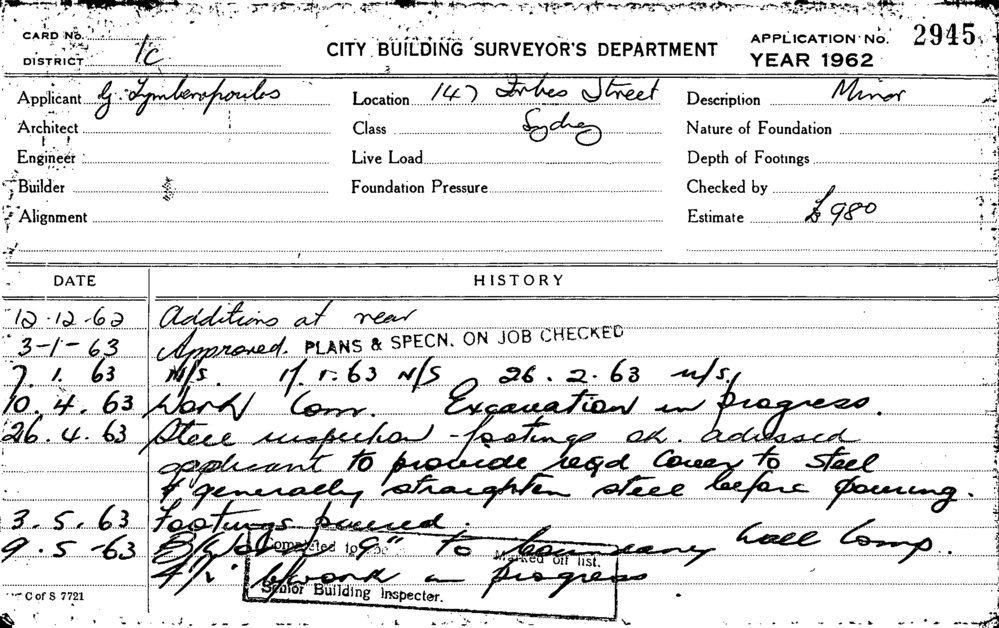 CARD No.
DISTRICT 1C
CITY BUILDING SURVEYOR'S DEPARTMENT
APPLICATION No. 2945
YEAR 1962
Applicant G. Lymberopoulos
Location 147 Forbes Street
Description Minor
Architect
Class Sydney
Nature of Foundation
Engineer
Live Load
Depth of Footings
Builder
Foundation Pressure
Checked by
Alignment
Estimate £980
DATE HISTORY
12-12-62 Additions at rear
3-1-63 Approved. PLANS & SPECN. ON JOB CHECKED
7.1.63 N/S. 17.1.63 N/S 26.2.63 N/S.
10.4.63 Work Com. Excavation in progress.
26.4.63 Steel inspection - footings ok. advised
applicant to provide reqd cover to steel
& generally straighten steel before pouring.
3.5.63 Footings poured.
9.5-63 B/Work 9" to boundary wall comp.
4½" b/work in progress
Completed
Marked off list.
Senior Building Inspector.
C of S 7721